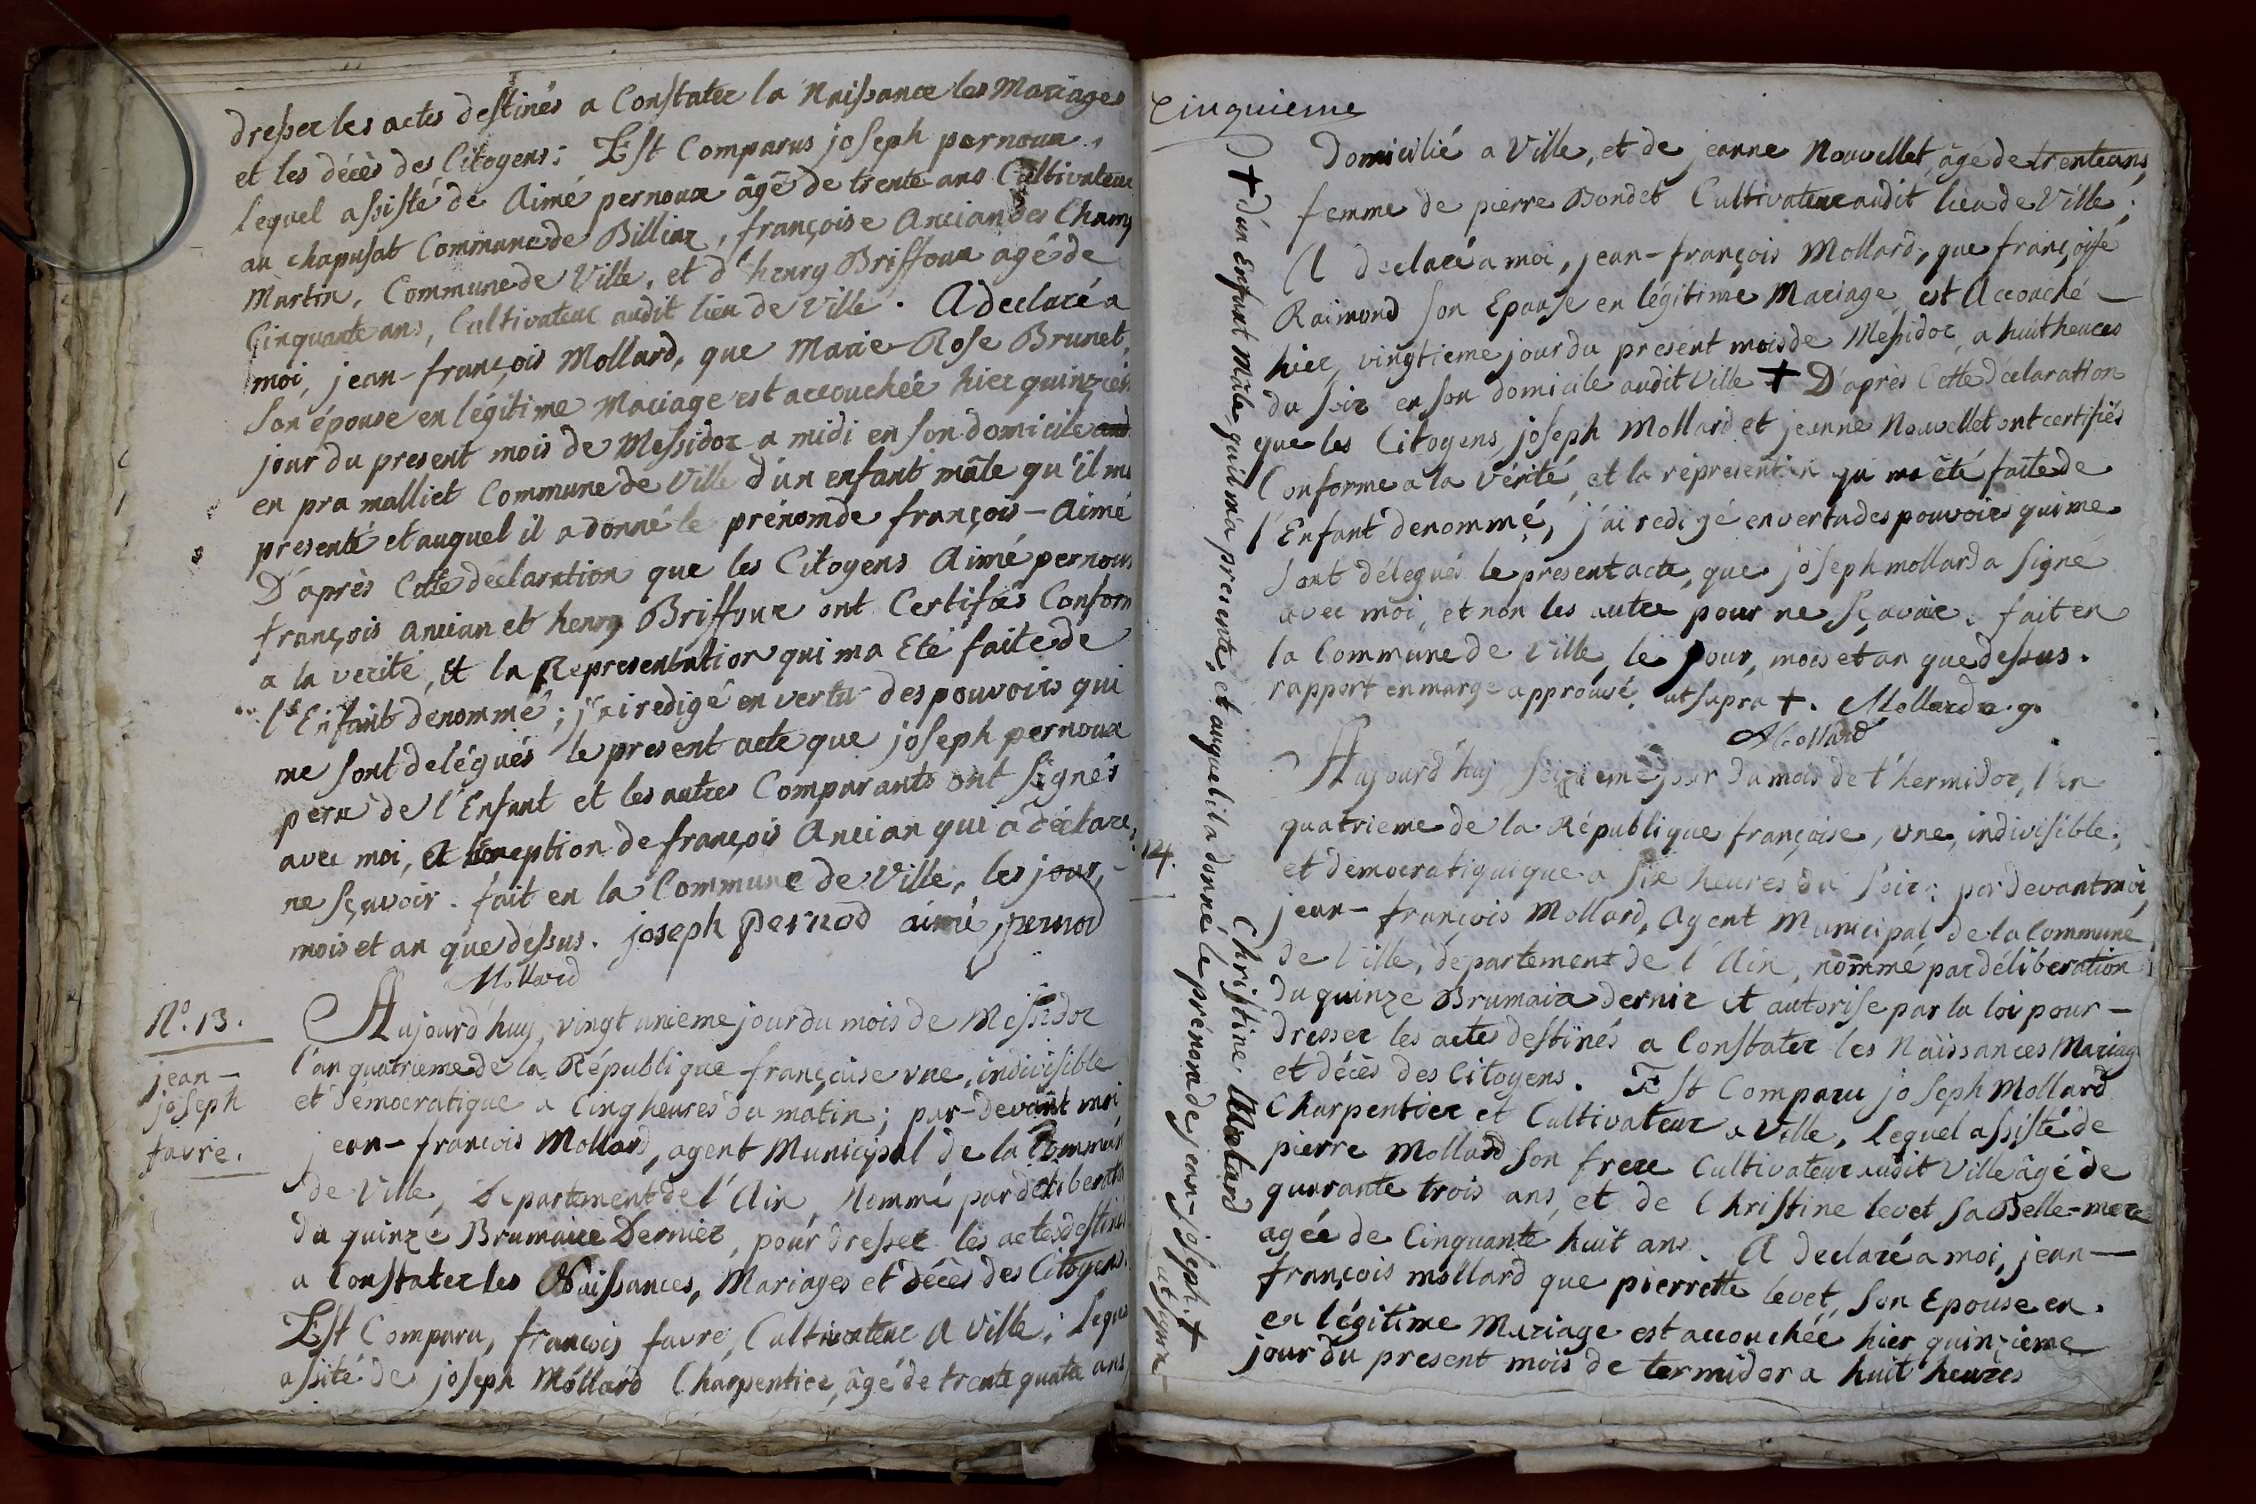 dresser les actes destinés a Constater la Naissance les Mariages
et les décès des Citoyens; Est Comparus joseph pernoux,
lequel assisté de Aimé pernoux âgé de trente ans Cultivateur
au chapusat Commune de Billiaz, françoise Ancian des Champ
Martin, Commune de Ville, et d'henry Briffoux agé de
Cinquante ans, Cultivateur audit lieu de Ville. A declaré a
moi, jean-françois Mollard, que Marie-Rose Brunet,
son épouse en légitime Mariage est accouchée hier quinzieme
jour du present mois de Messidor a midi en son domicile aud
en pra malliet Commune de Ville d'un enfant mâle qu'il ma
presenté et auquel il a donné le prénom de françois-Aimé
D'après Cette déclaration que les Citoyens Aimé pernoux
françois ancian et henry Briffoux ont Certifiés Conform
a la verité, et la Representation qui ma Eté faite de
l'Enfant denommé; j'ai redigé en vertu des pouvoirs qui
me sont delégués le present acte que joseph pernoux
pere de l'Enfant et les autres Comparants ont signés
avec moi, a lexception de françois Ancian qui a déclaré
ne sçavoir. fait en la Commune de Ville, les jour,
mois et an que dessus. joseph pernod aimé pernod
Mollard
N°. 13.
jean-
joseph
favre.
Aujourd'huy, vingt unieme jour du mois de Messidor
l'an quatrieme de la République françoise une, indivisible
et démocratique a Cinq heures du matin; par-devant moi
jean-francois Mollard, agent Municipal de la Commun
de Ville, Departement de l'Ain, Nommé par déliberation
du quinze Brumaire Dernier, pour dresser les actes destinés
a Constater les Naissances, Mariages et décès des Citoyens.
Est Comparu, francois favre, Cultivateur a Ville; Lequel
assité de joseph Mollard Charpentier, âgé de trente quatre ans
Cinquieme
Domicilié a Ville, et de jeanne Nouvellet, âgé de trente ans,
femme de pierre Bondet Cultivateur audit lieu de Ville;
A declaré a moi, jean-françois Mollard, que françoise
Raimond son Epouse en légitime Mariage, est Accouché
hier, vingtieme jour du present mois de Messidor a huit heures
du soir en son domicile audit Ville + D'après Cette déclaration
que les Citoyens joseph Mollard et jeanne Nouvellet ont certifiés
Conforme a la vérité, et la répresention qui ma été faite de
l'Enfant denommé, j'ai redigé en vertu des pouvoirs qui me
sont délegués le present acte, que joseph mollard a signé
avec moi, et non les autre pour ne sçavoir. fait en
la Commune de Ville, le jour, mois et an que dessus.
rapport en marge approuvé. ut supra +. Mollard a. g.
Mollard
+ d'un Enfant mâle, qu'il m'a presenté, et auquel il a donné le prénom de jean-joseph. + ut supra
14.
Christine Molard
Aujourd'huy seizieme jour du mois de t'hermidor, l'an
quatrieme de la République françoise, une, indivisible,
et democratiquique a six heures du soir: par devant moi,
jean-françois Mollard, Agent Municipal de la Commune
de Ville, departement de l'Ain, nommé par déliberation
du quinze Brumaire dernir et autorise par la loi pour-
dresser les acte destinés a Constater les Naissances Mariag
et décès des Citoyens. Est Comparu joseph Mollard
Charpentier et Cultivateur a Ville, Lequel assisté de
pierre Mollard son frere Cultivateur audit Ville âgé de
quarante trois ans, et de Christine levet sa Belle-mere
agée de Cinquante huit ans. A declaré a moi, jean-
françois mollard que pierrette levet, son Epouse en
en légitime Mariage est accouchée hier quinzieme
jour du present mois de termidor a huit heures